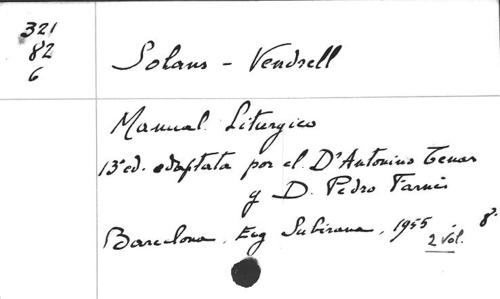 321
82
6
Solans - Vendrell
Manual Liturgico
13ª ed. adaptata por el Dr Antonino Tenas
y D. Pedro Farnés
Barcelona, Eug Subirana, 1955 8º
2 vol.